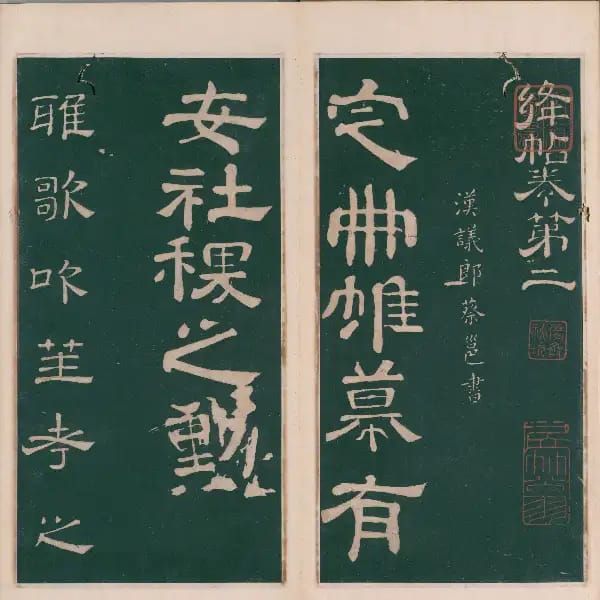 絳帖卷第二
漢議郎蔡邕書
定冊帷幕有
安社稷之勳
雅歌吹笙考之